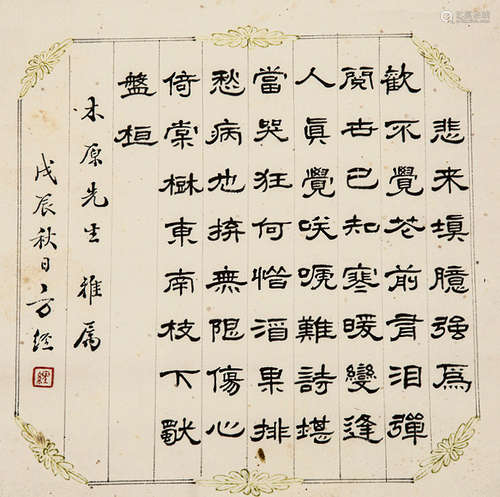 悲来填臆強爲
歡不覺花前有泪彈
閱世已知寒暖變逢
人眞覺咲嗁難詩堪
當哭狂何惜酒果排
愁病也拚無限傷心
倚棠樹東南枝下
盤桓
木原先生雅屬
戊辰秋日方經